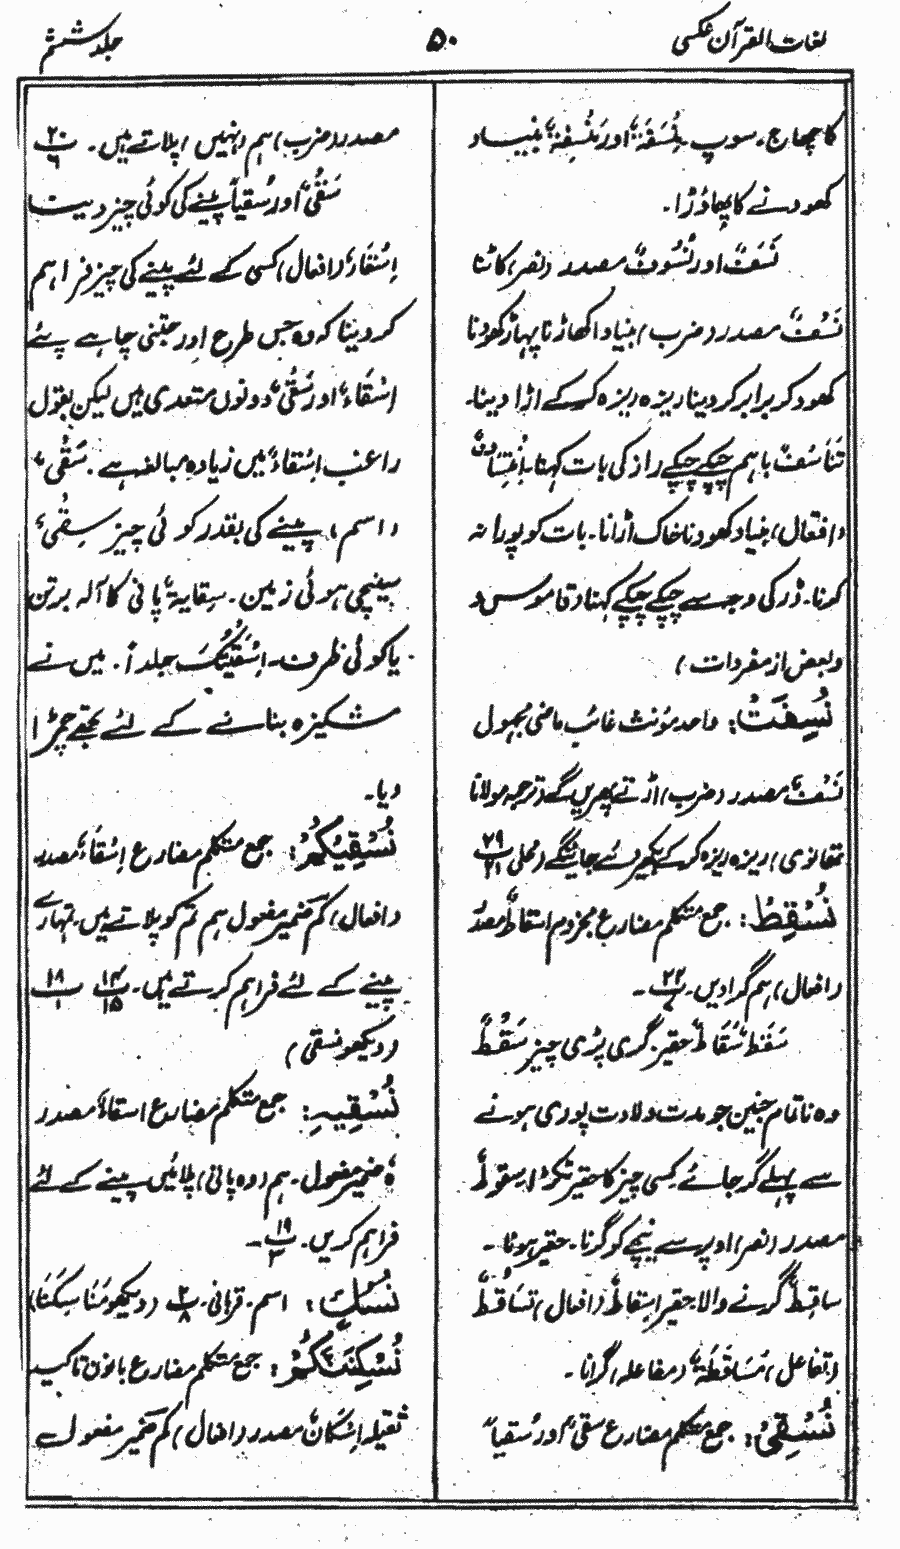 لغات القرآن عکسی
۵۰
جلد ششم
کا چھاج۔ سوپ۔ نُسْفَۃٌ اور نِسْفَۃٌ بنیاد
کھودنے کا پھاؤڑا۔
نَسَفَتْ اور نُسُوفٌ مصدر (نصر) کاٹنا
نَسْفٌ مصدر (ضرب) بنیاد اکھاڑنا پہاڑ کھودنا
کھود کر برابر کر دینا ریزہ ریزہ کرکے اڑا دینا۔
تَنَاسُفٌ باہم چپکے چپکے راز کی بات کہنا۔
(افتعال) بنیاد کھودنا خاک اڑانا۔ بات کو پورا نہ
کرنا۔ ڈر کی وجہ سے چپکے چپکے کہنا (قاموس
وبعض از مفردات)
نُسِفَتْ: واحد مؤنث غائب ماضی مجہول
نَسْفٌ مصدر (ضرب) اڑتے پھریں گے (ترجمہ مولانا
تھانوی) ریزہ ریزہ کرکے بکھیر دئے جائینگے (محلی) ۲۹/۲۱
نُسْقِطْ: جمع متکلم مضارع مجزوم اسقاطٌ مصدر
(افعال) ہم گرادیں۔ ۲۲/۷۔
سَقَطٌ سُقَاطٌ حقیر۔ گری پڑی چیز سَقْطٌ
وہ ناتمام جنین جو مدت ولادت پوری ہونے
سے پہلے گر جائے کسی چیز کا حقیر ٹکڑا سقوطٌ
مصدر (نصر) اوپر سے نیچے کو گرنا۔ حقیر ہونا۔
ساقِطٌ گرنے والا۔ حقیر اسقاطٌ (افعال) تساقُطٌ
(تفاعل) مُسَاقَطَۃٌ (مفاعلہ) گرانا۔
نُسْقِیْ: جمع متکلم مضارع سقیٌ اور سُقیاً
مصدر (ضرب) ہم (نہیں) پلاتے ہیں۔ ۲۰/۶
سَقْیٌ اور سُقیاً پینے کی کوئی چیز دینا
اِسْقَاءٌ (افعال) کسی کے لئے پینے کی چیز فراہم
کردینا کہ وہ جس طرح اور جتنی چاہے پئے
اِسْقَاءٌ اور سَقْیٌ دونوں متعدی ہیں لیکن بقول
راغب اِسْقَاءٌ میں زیادہ مبالغہ ہے۔ سَقْیٌ
(اسم) پینے کی بقدر کوئی چیز سِقْیٌ
سینچی ہوئی زمین۔ سِقایۃٌ پانی کا آلہ برتن
یا کوئی ظرف۔ اَسْقَیْتُکَ جلداً۔ میں نے
مشکیزہ بنانے کے لئے تجھے چمڑا
دیا۔
نُسْقِیْکُمْ: جمع متکلم مضارع اِسْقَاءٌ مصدر
(افعال) کم ضمیر مفعول ہم تم کو پلاتے ہیں۔ تمہارے
پینے کے لئے فراہم کرتے ہیں۔ ۱۴/۱۵ ۱۸/۱
(دیکھو نسقی)
نُسْقِیَہٗ: جمع متکلم مضارع اسقاءٌ مصدر
ہٗ ضمیر مفعول۔ ہم (وہ پانی) پلائیں پینے کے لئے
فراہم کریں۔ ۱۹/۳۔
نُسُکٍ: اسم۔ قربانی۔ ۲/۸ (دیکھو مَنَاسِکَنَا)
نُسْکِنَنَّکُمْ: جمع متکلم مضارع بانون تاکید
ثقیلہ اِسْکَانٌ مصدر (افعال) کم ضمیر مفعول